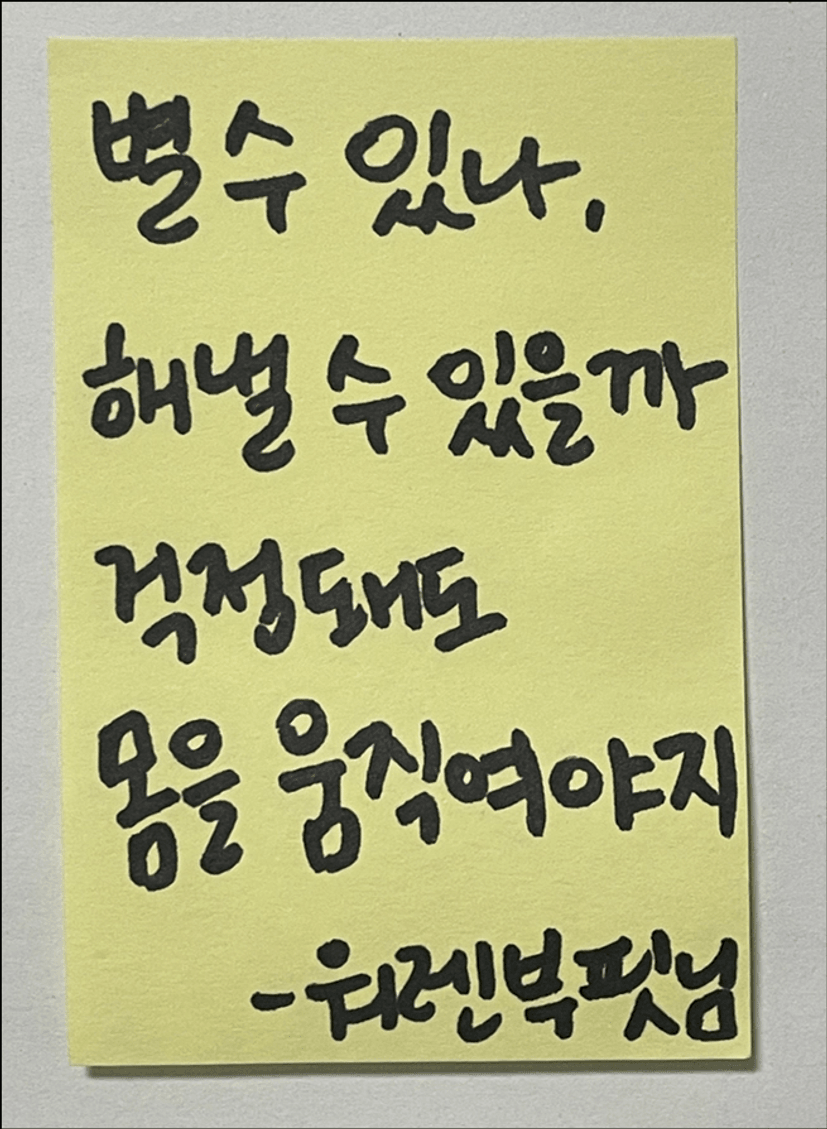 별수 있나,
해낼 수 있을까
걱정돼도
몸을 움직여야지
-워렌부핏님